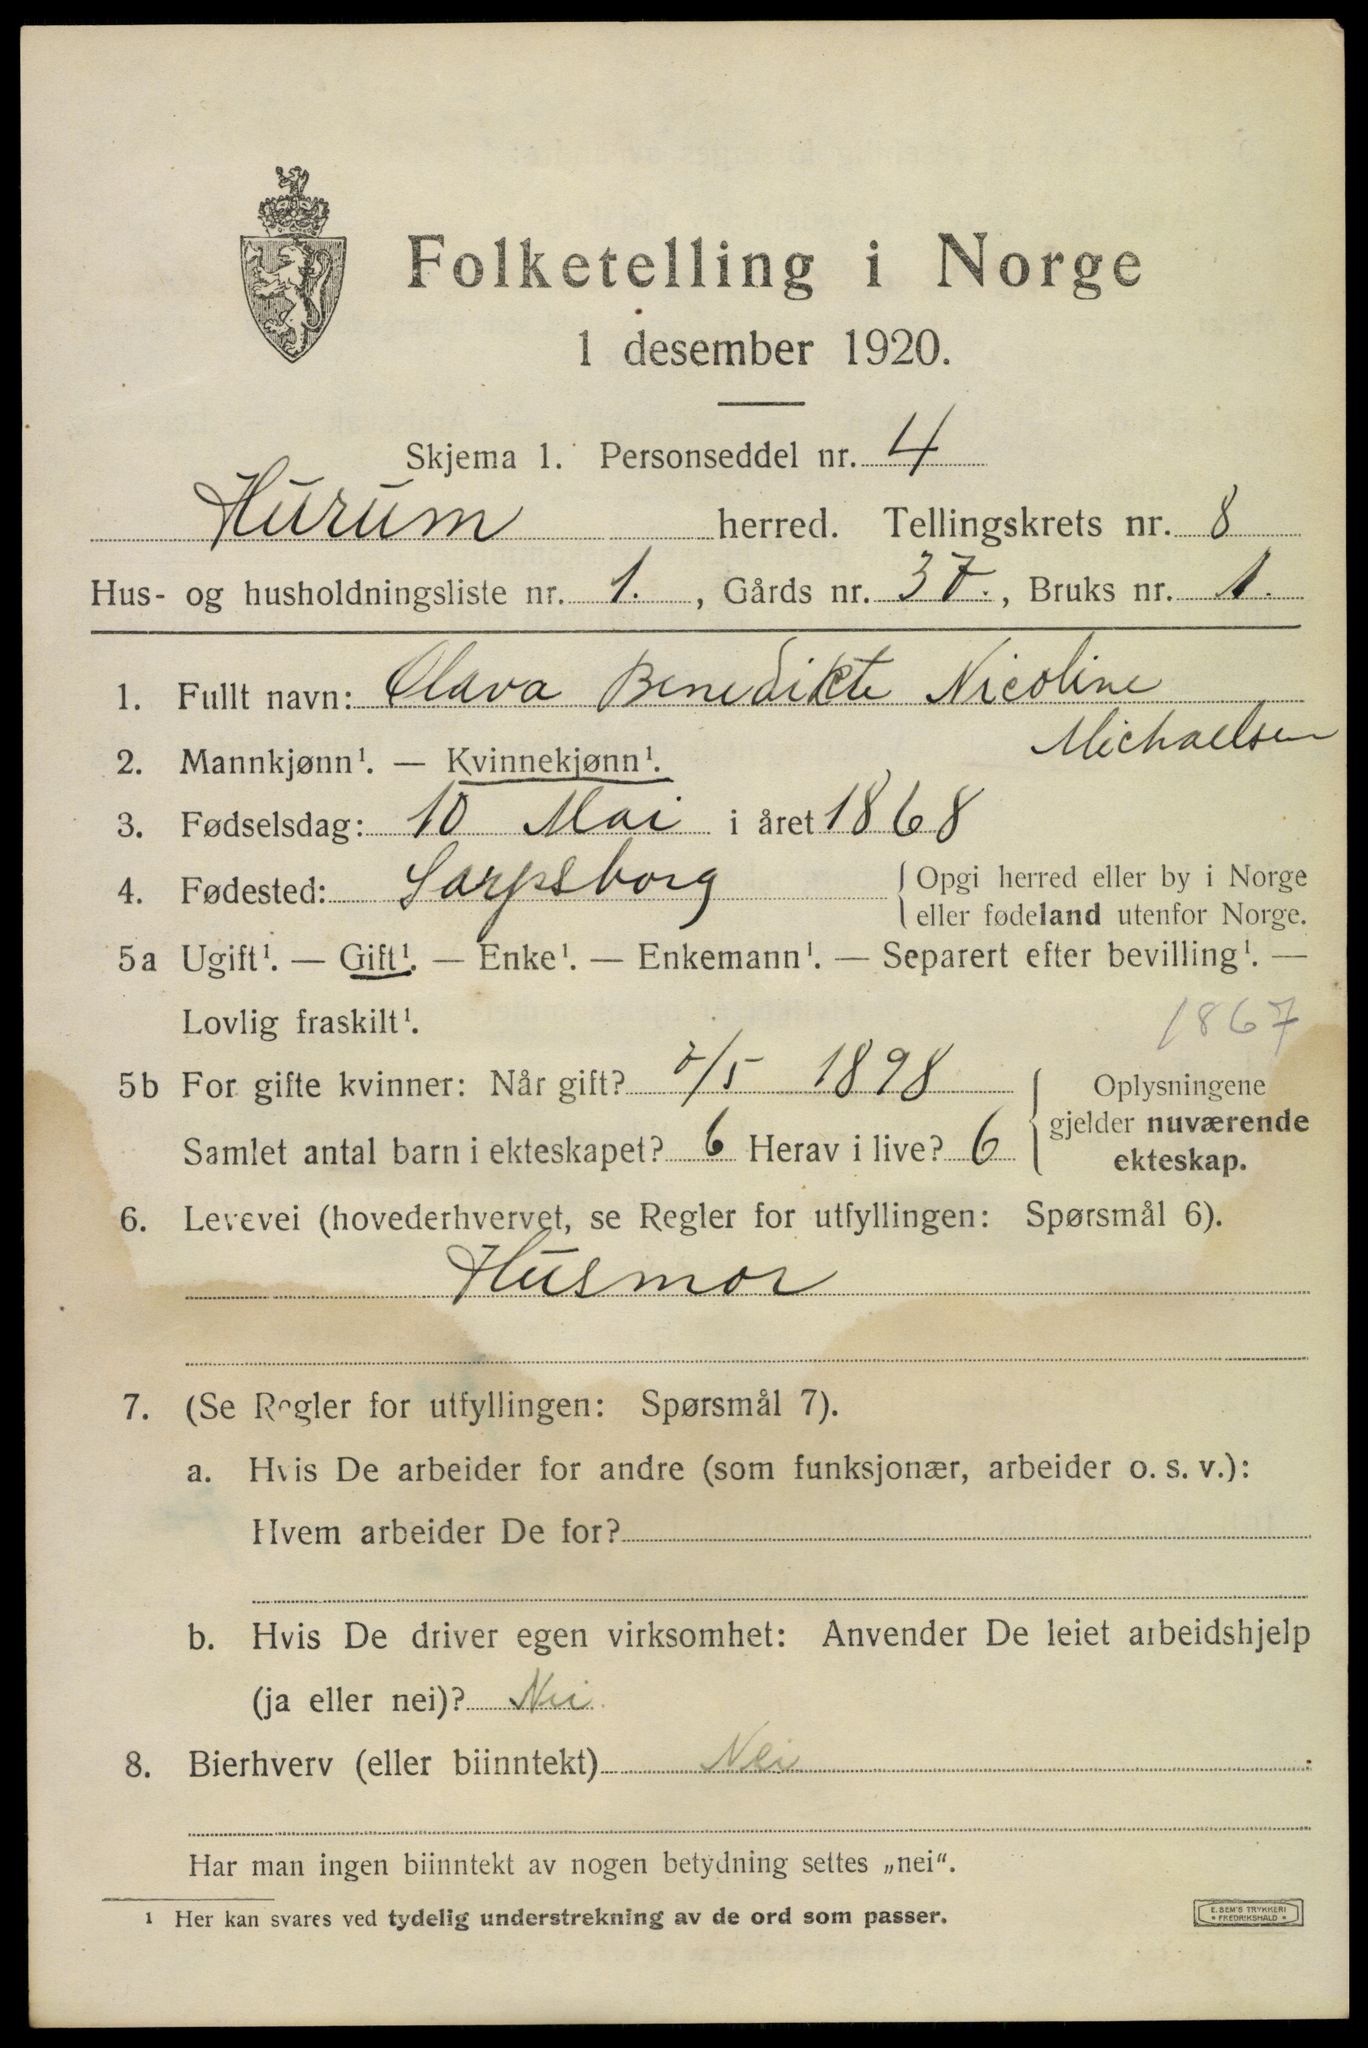 Folketelling i Norge
1 desember 1920.
Skjema 1. Personseddel nr. 4
Hurum herred. Tellingskrets nr. 8
Hus- og husholdningsliste nr. 1. , Gårds nr. 37. , Bruks nr. 1.
1. Fullt navn: Olava Benedikte Nicoline
Michaelsen
2. Mannkjønn¹. — Kvinnekjønn¹.
3. Fødselsdag: 10 Mai i året 1868
4. Fødested: Sarpsborg { Opgi herred eller by i Norge
eller fødeland utenfor Norge.
5a Ugift¹. — Gift¹. — Enke¹. — Enkemann¹. — Separert efter bevilling¹. —
Lovlig fraskilt¹. 1867
5b For gifte kvinner: Når gift? /5 1898 { Oplysningene
gjelder nuværende
Samlet antal barn i ekteskapet? 6 Herav i live? 6 ekteskap.
6. Levevei (hovederhvervet, se Regler for utfyllingen: Spørsmål 6).
Husmor
7. (Se Regler for utfyllingen: Spørsmål 7).
a. Hvis De arbeider for andre (som funksjonær, arbeider o. s. v.):
Hvem arbeider De for?
b. Hvis De driver egen virksomhet: Anvender De leiet arbeidshjelp
(ja eller nei)? Nei
8. Bierhverv (eller biinntekt) Nei
Har man ingen biinntekt av nogen betydning settes „nei“.
¹ Her kan svares ved tydelig understrekning av de ord som passer.
E. SEM'S TRYKKERI
* FREDRIKSHALD *